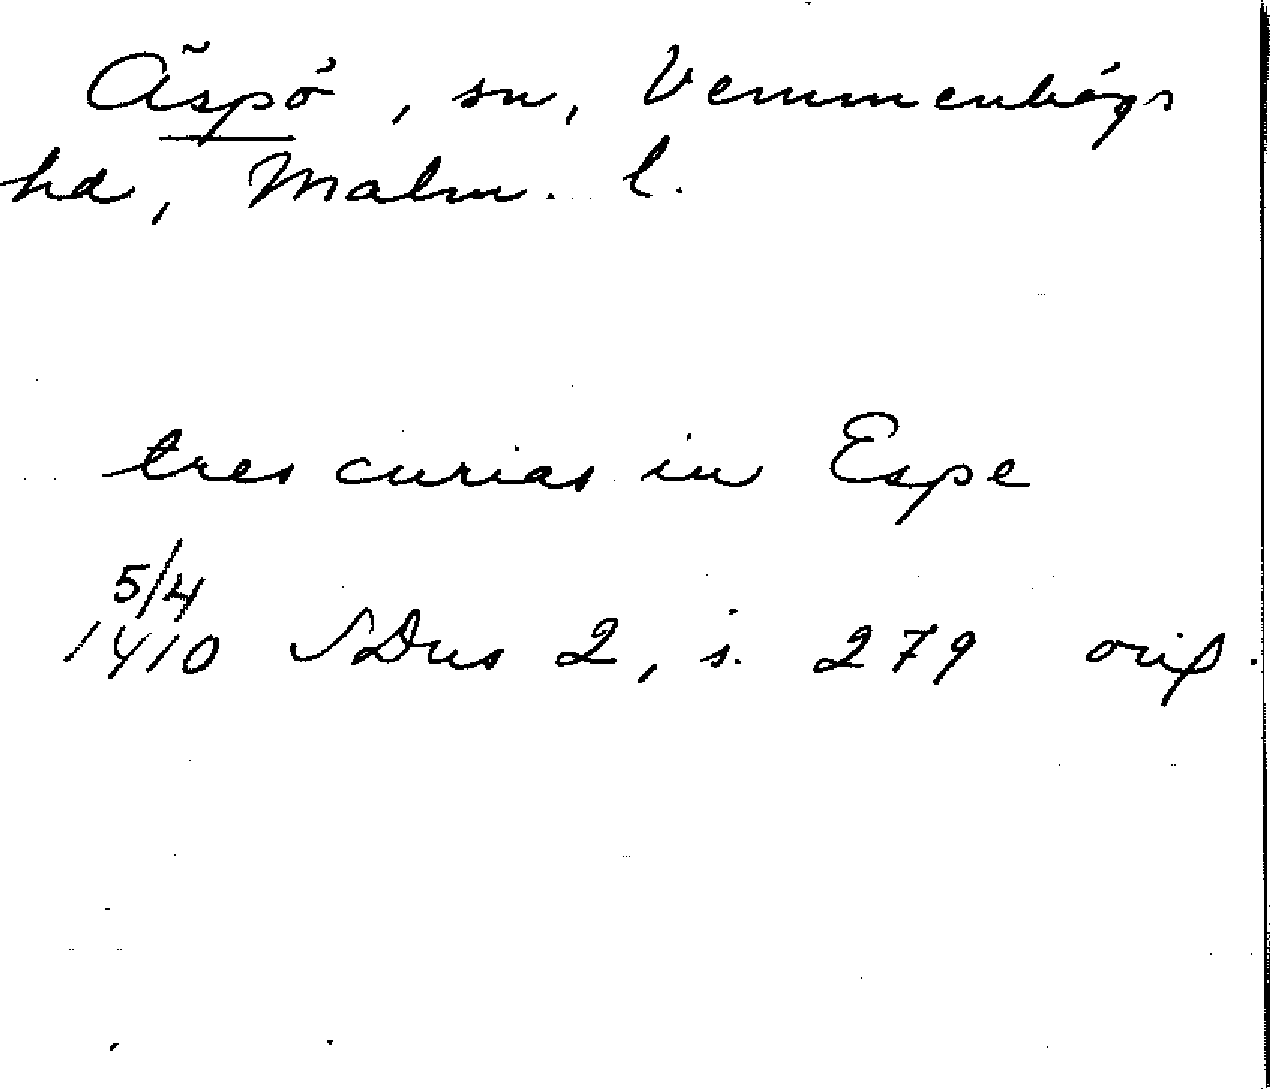 Äspö, sn, Vemmenhögs
hd, Malm. l.
tres curias in Espe
5/4
1410 SDns 2, s. 279 orig.